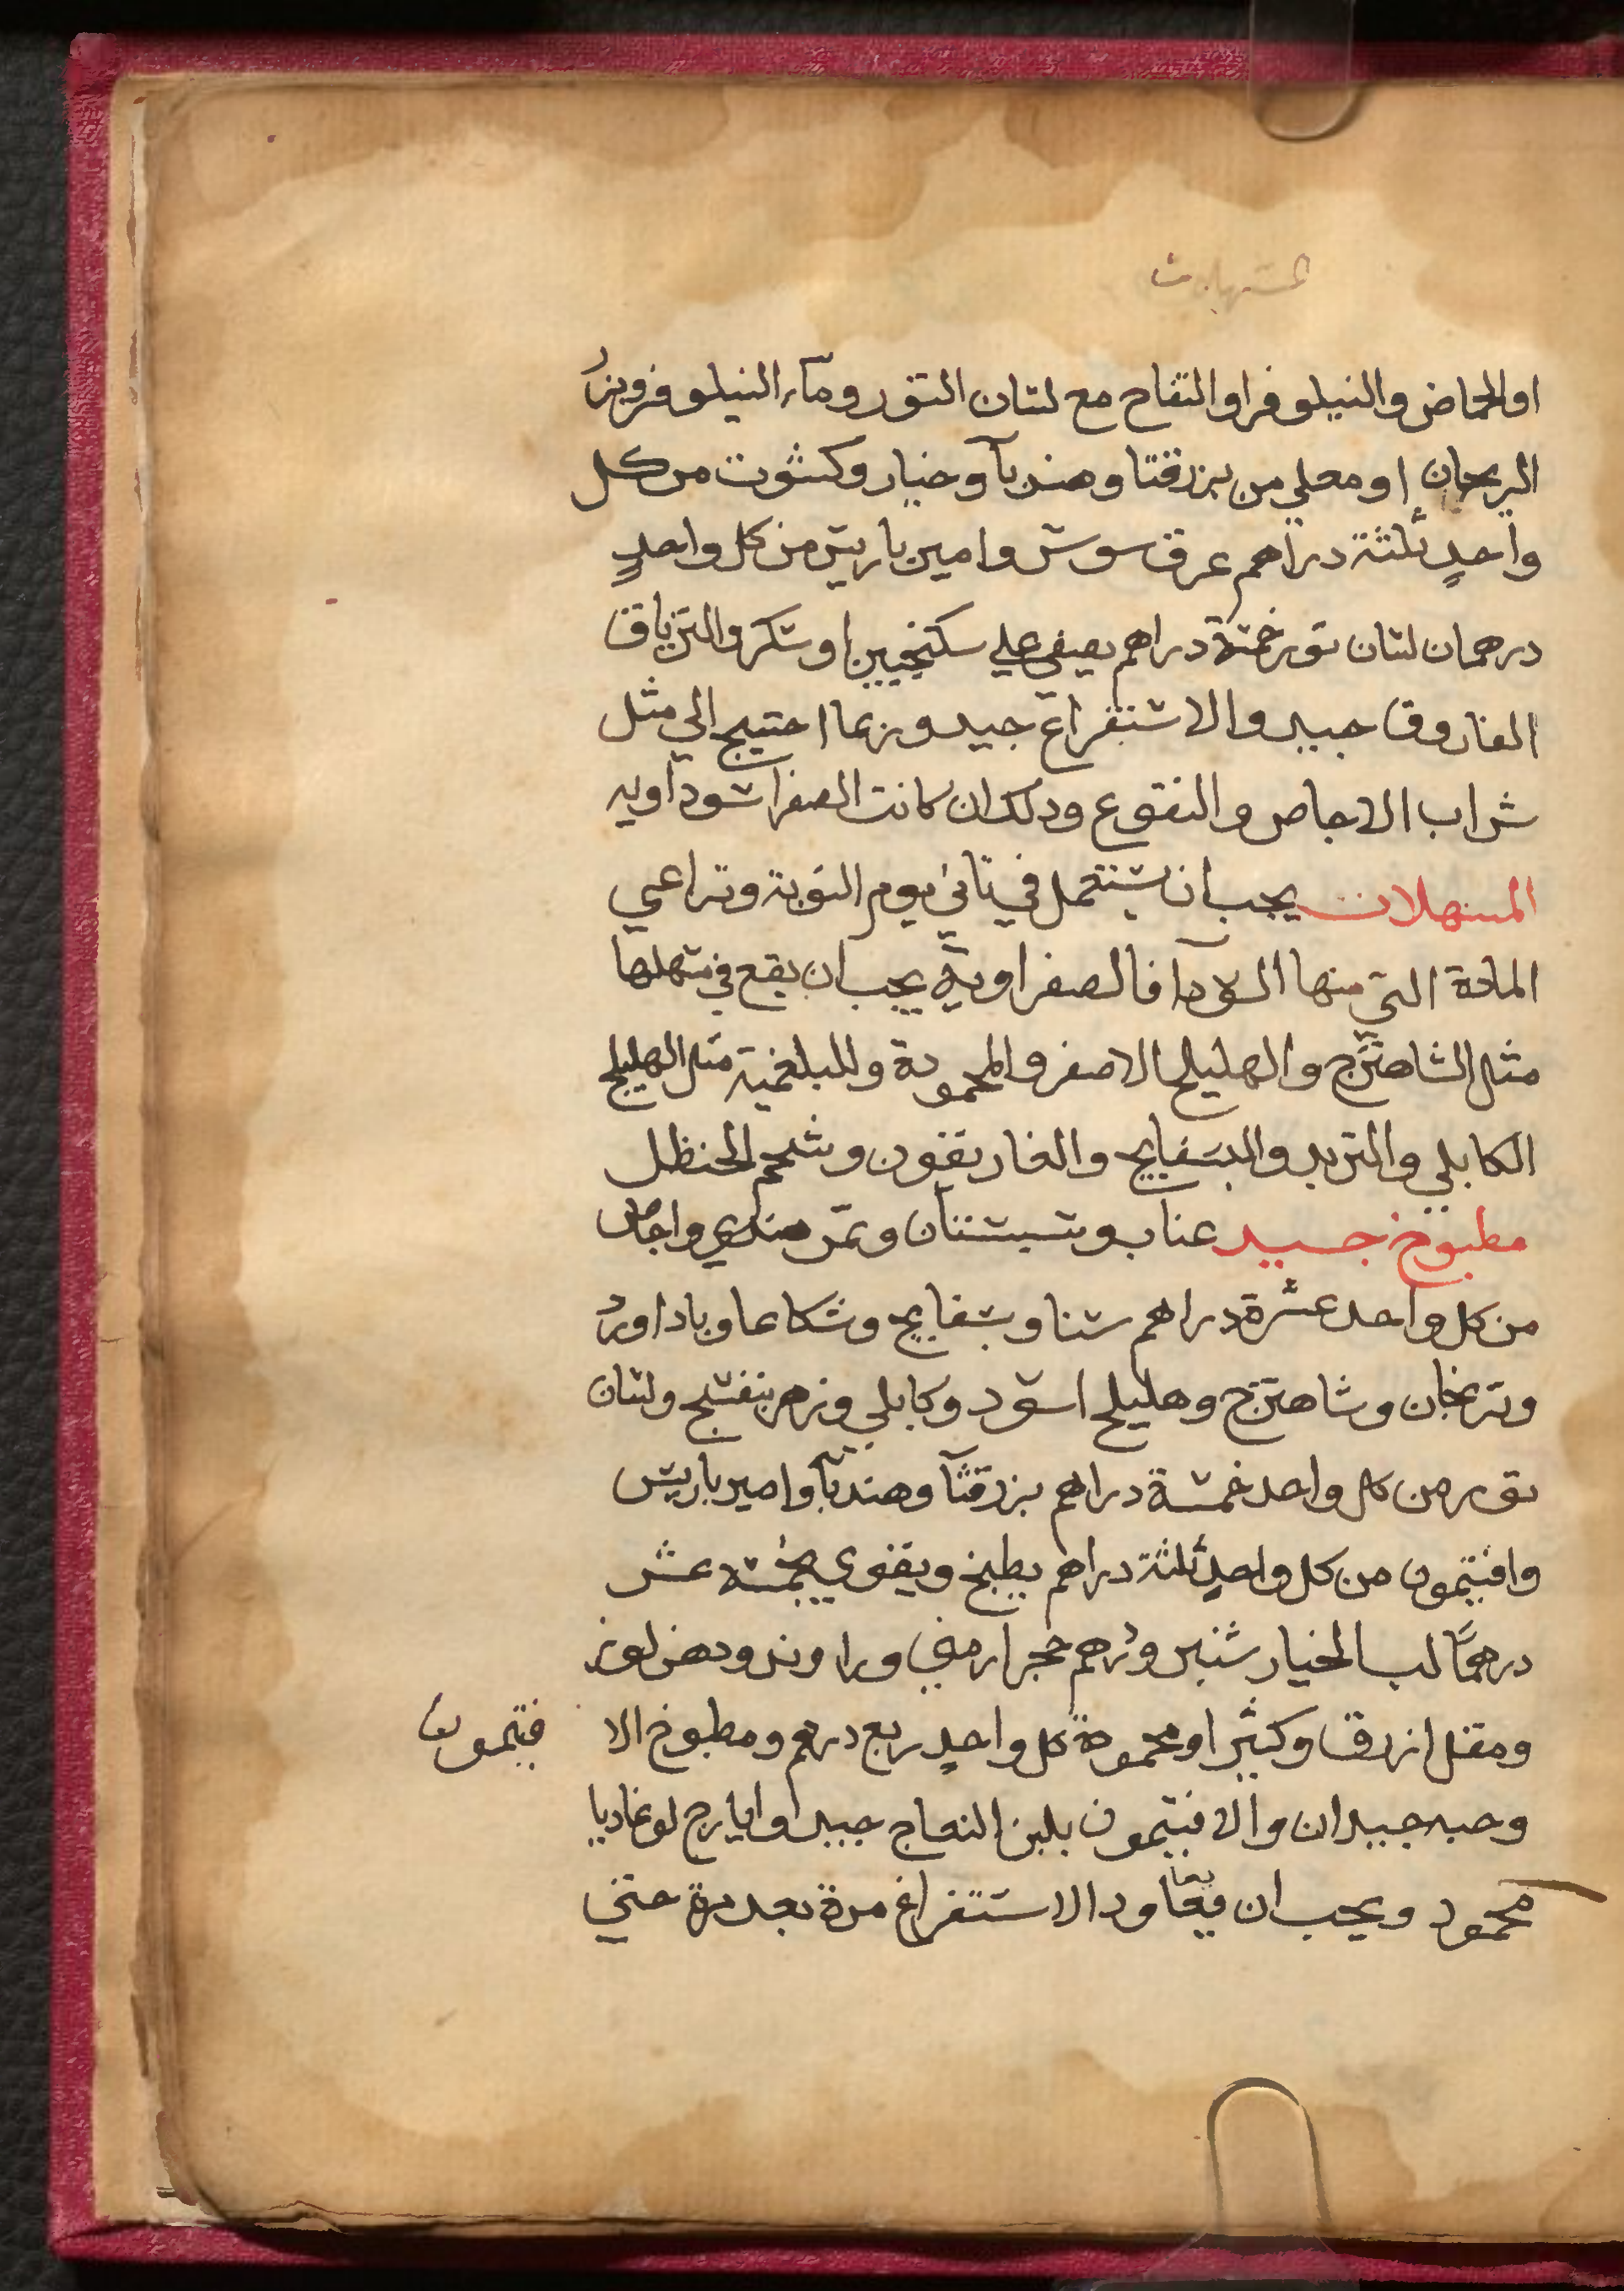 المسهلات
او الحماض والنيلوفر او التفاح مع لسان الثور وماء النيلوفر وبزر
الريحان او مغلي من بزر قثا وهندبآ وخيار وكشوت من كل
واحدٍ ثلثة دراهم عرق سوس وامير باريس من كل واحدٍ
درهمان لسان ثور خمسة دراهم يصفي علي سكنجبين او سكر والترياق
الفاروق جيد والاستفراغ جيد وربما احتيج الي مثل
شراب الاجاص والنقوع وذلك ان كانت الصفرا سوداويه
المسهلات يجب ان يستعمل في ثاني يوم النوبة وتراعي
المادة التي منها السودآ فالصفراوية يجب ان يقع في مسهلها
مثل الشاهترج والهليلج الاصفر والمحمودة وللبلغمية مثل الهليلج
الكابلي والتربد والبسفايج والغاريقون وشحم الحنظل
مطبوخ جيد عناب وسبستان وتمر هندي واجاص
من كل واحد عشرة دراهم سنا وبسفايج وشكاعا وباداورد
وترنجان وشاهترج وهليلج اسود وكابلي وزهر بنفسج ولسان
ثور من كل واحد خمسة دراهم بزر قثآ وهندبآ وامير باريس
وافتيمون من كل واحدٍ ثلثة دراهم يطبخ ويقوي بخمسة عشر
درهمًا لب الخيار شنبر ودرهم حجر ارمني وراوند ودهن لوز
ومقل ازرق وكثيرا ومحمودة كل واحدٍ ربع درهم ومطبوخ الا فتيمون
وحبه جيدان والافتيمون بلبن النعاج جيد وايارج لوغاديا
محمود ويجب ان يعاود الاستفراغ مرة بعد مرة حتي